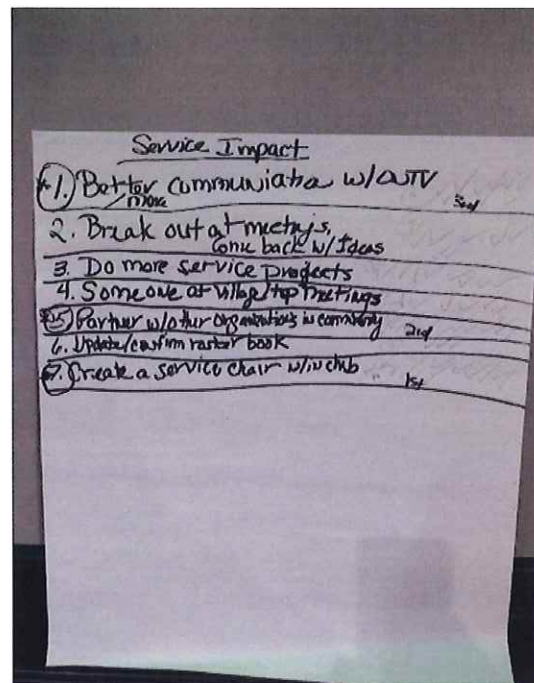 Service Impact
1. Better communiatra w/
more
3rd
2. Break out at meetings,
come back w/ Ideas
3. Do more service projects
4. Someone at Village/twp meetings
5. Partner w/other organizations in community 2nd
6. Update/confirm roster book
7. Create a service chair w/in club 1st